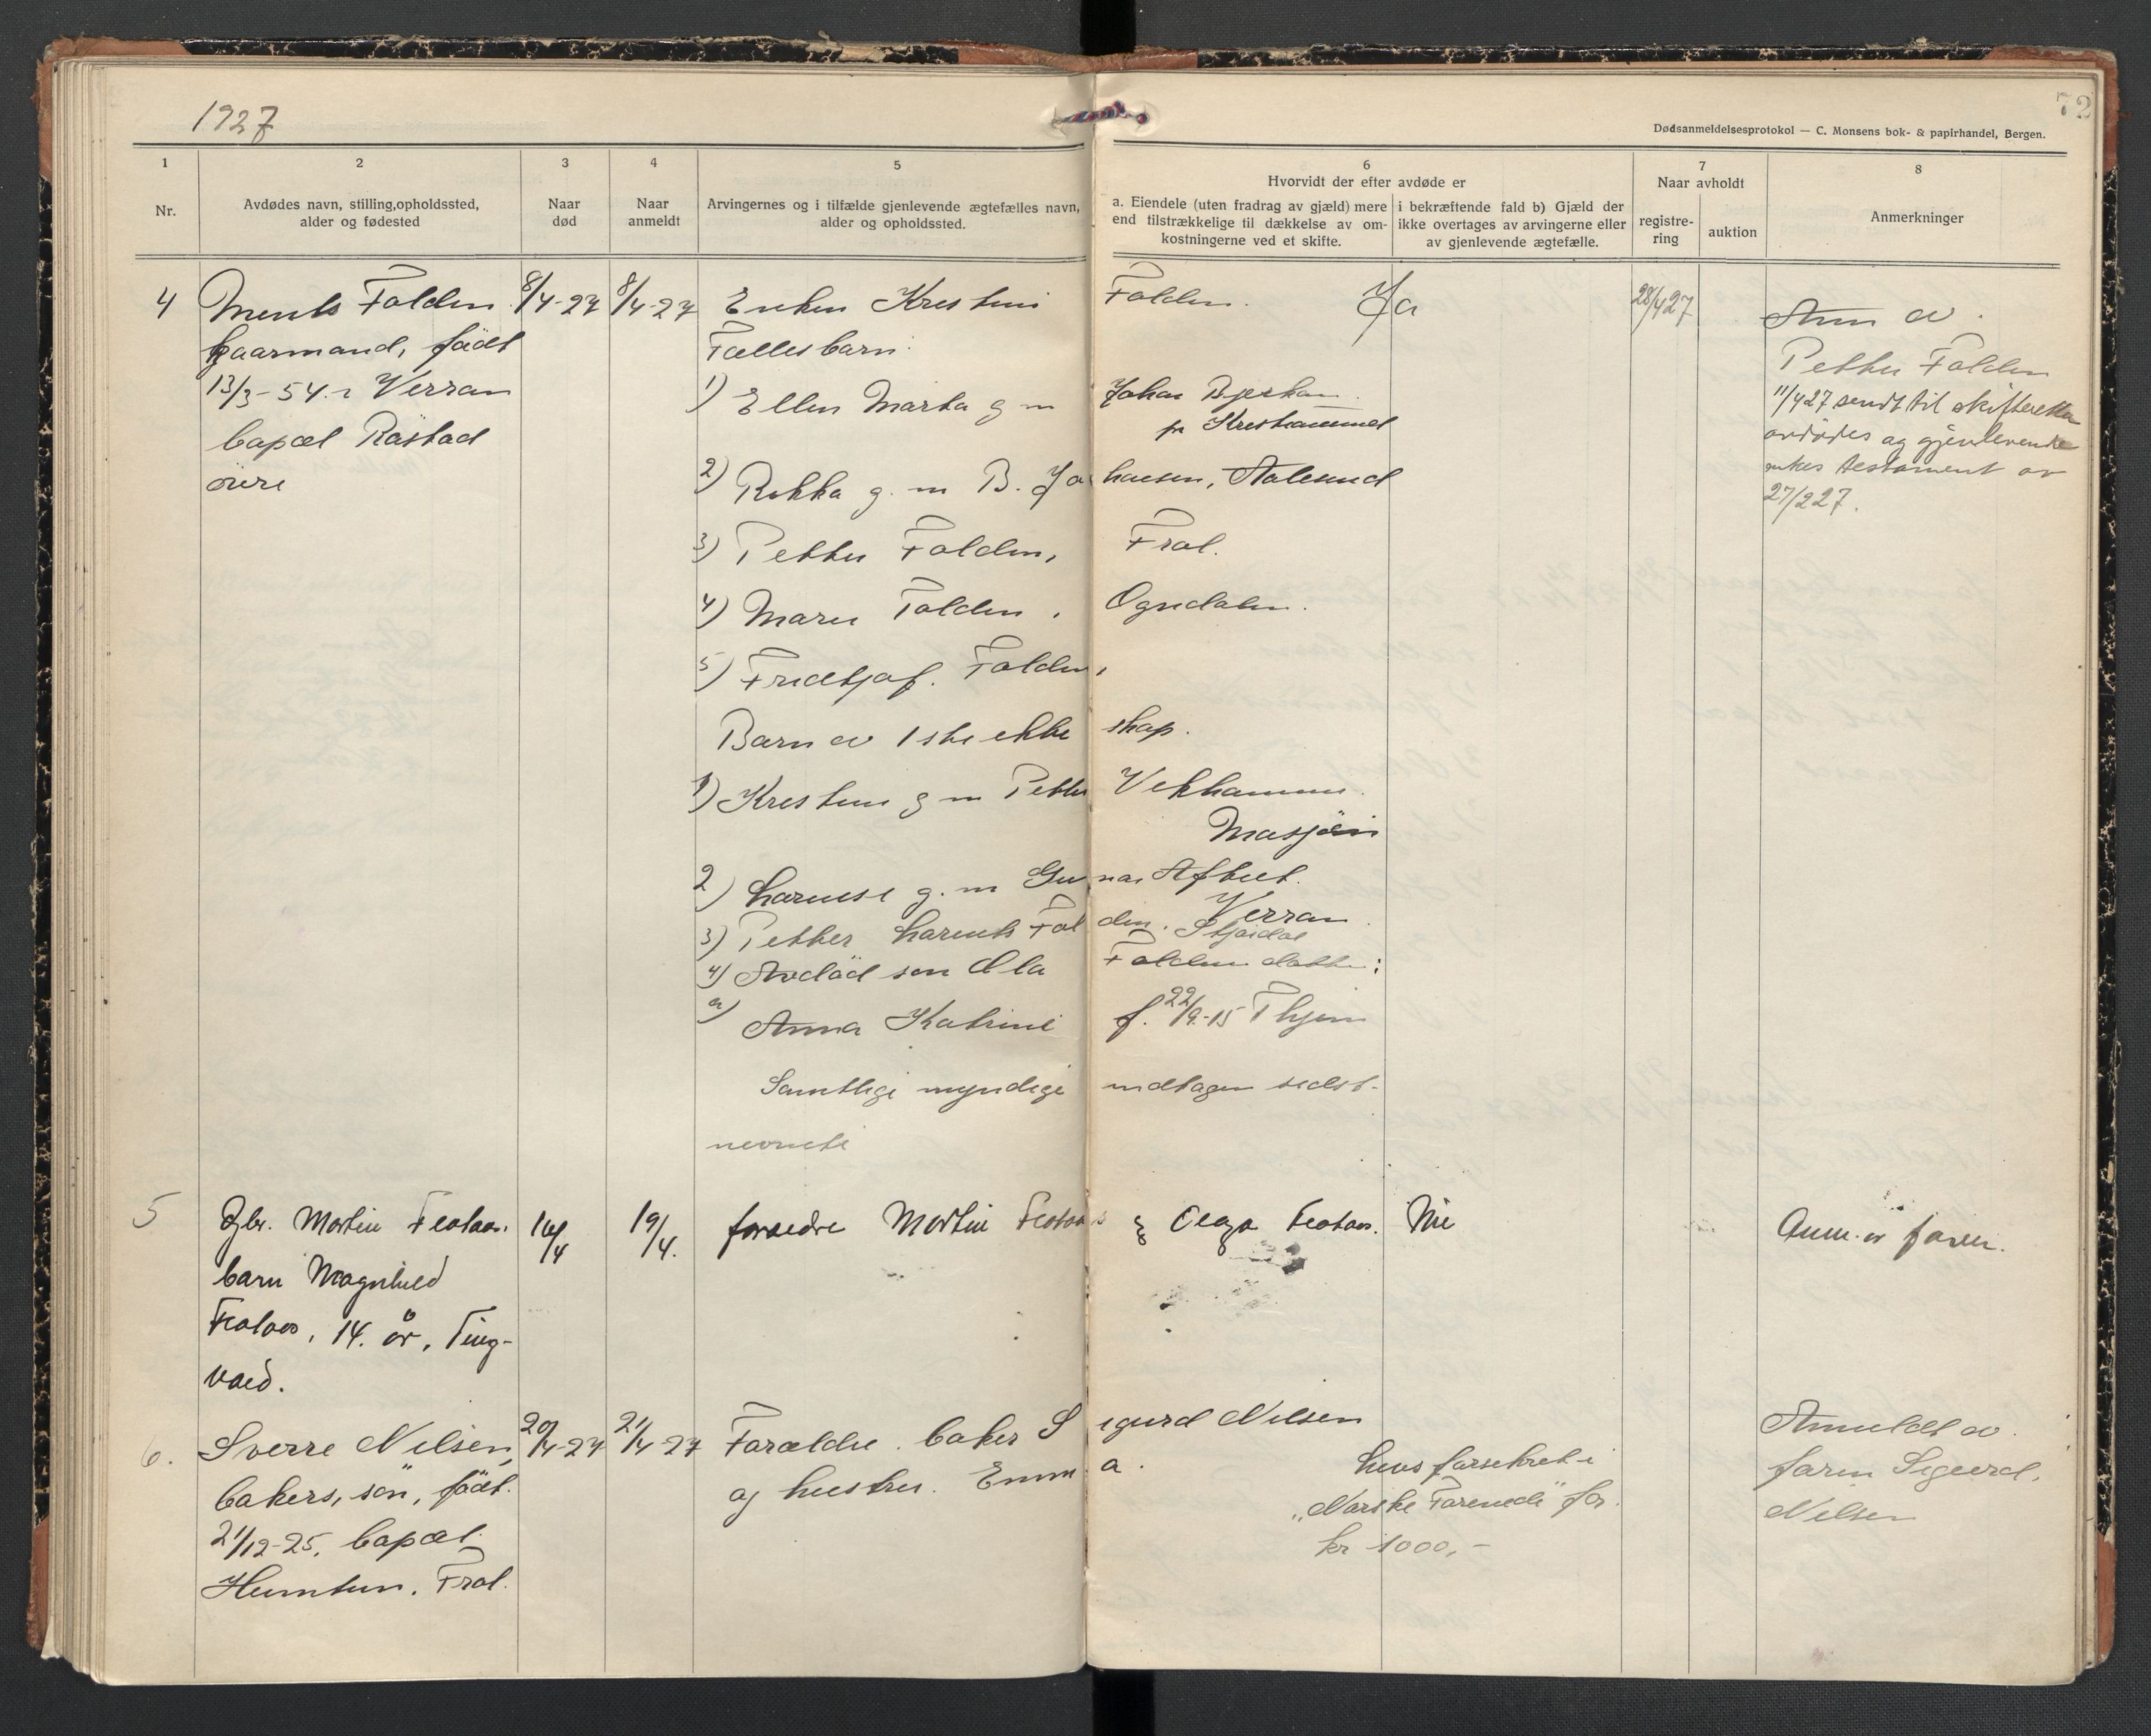 1927
72
Dødsanmeldelsesprotokol — C. Monsens bok- & papirhandel, Bergen.
1
2
3
4
5
6
7
8
Nr.
Avdødes navn, stilling,opholdssted,
alder og fødested
Naar
død
Naar
anmeldt
Arvingernes og i tilfælde gjenlevende ægtefælles navn,
alder og opholdssted.
Hvorvidt der efter avdøde er
a. Eiendele (uten fradrag av gjæld) mere
end tilstrækkelige til dækkelse av om-
kostningerne ved et skifte.
i bekræftende fald b) Gjæld der
ikke overtages av arvingerne eller
av gjenlevende ægtefælle.
Naar avholdt
registre-
ring
auktion
Anmerkninger
4
Ments Folden
gaarmand, født
13/3-54 i Verran
bopæl Råstad
øvre
8/4-27
8/4-27
Enken Krestine Folden.
Fælles barn
1) Ellen Marta g m Johan
Krestiansund
2) Rikka g. m B. Johansen, Aalesund
3) Petter Folden, Frol.
4) Marie Folden, Ogndalen.
5) Fridtjof. Folden,
Barn av 1ste ekteskap.
1) Krestine g m Petter
Mosjøen
2) Larense g. m Gunnar Aftret.
Verran
3) Petter Larents Folden. Skjeidal
4) Avdød søn Ola Folden datter:
a) Anna Katrine f. 22/9-15 Thjem
Samtlige myndige undtagen sidst-
nevnte
Ja
28/4 27
Anm av
Petter Folden
11/4 27 sendt til skifteretten
avdødes og gjenlevende
enkes testament av
27/2 27.
5
Gbr. Martin Flotaas.
barn Magnhild
Flotaas, 14. år, Ting-
vold.
16/4
19/4.
foreldre Martin Flotaas & Olga Flotaas.
Nei
Anm. av faren.
6.
Sverre Nilsen,
bakers, søn, født.
21/12-25. bopæl
Heimtun. Frol.
20/4-27
21/4-27
Forældre. baker Sigurd Nilsen
og hustru. Emma.
Livsforsikret i
„Norske Forenede" for
kr 1000,-
Anmeldt av
faren Sigurd,
Nilsen